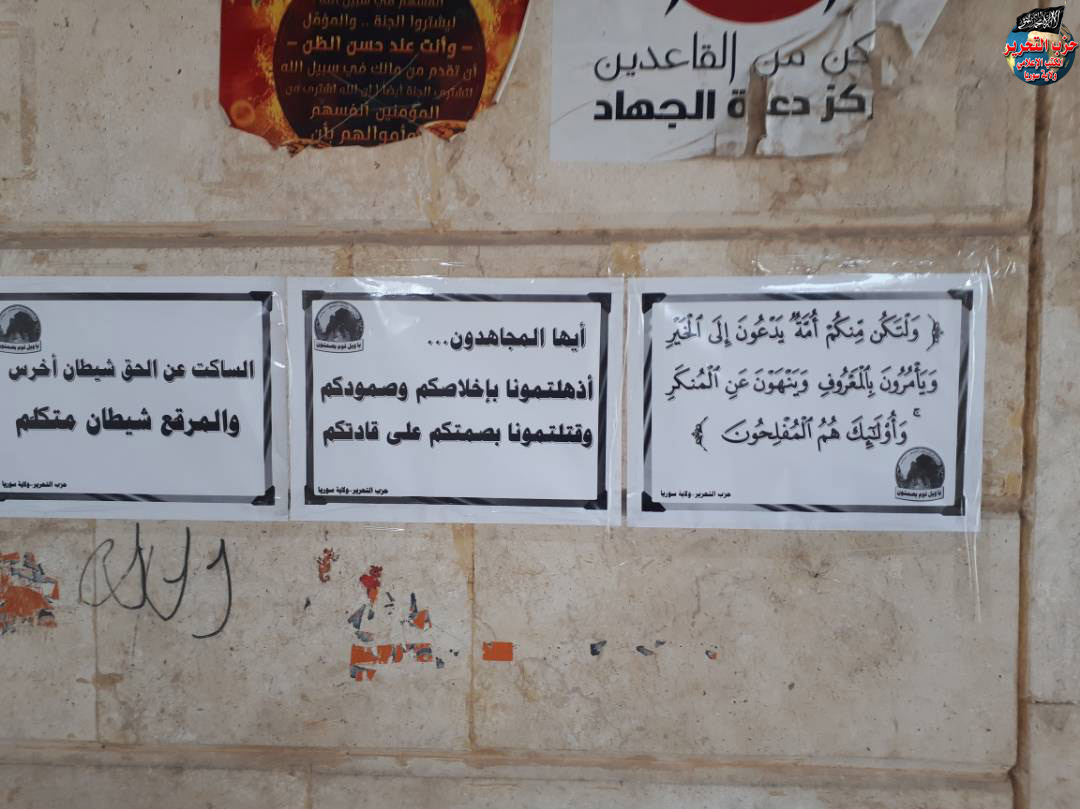 حزب التحرير
المكتب الإعلامي
ولاية سوريا
ليشتروا الجنة .. والمؤمّل
- وأنت عند حسن الظن -
أن تقدم من مالك في سبيل الله
المؤمنين أنفسهم
وأموالهم بأن
كن من القاعدين
كز دعوة الجهاد
﴿ وَلْتَكُن مِّنكُمْ أُمَّةٌ يَدْعُونَ إِلَى الْخَيْرِ
وَيَأْمُرُونَ بِالْمَعْرُوفِ وَيَنْهَوْنَ عَنِ الْمُنكَرِ
ۚ وَأُولَٰئِكَ هُمُ الْمُفْلِحُونَ ﴾
يا ويل قوم يصمتون
حزب التحرير-ولاية سوريا
يا ويل قوم يصمتون
أيها المجاهدون...
أذهلتمونا بإخلاصكم وصمودكم
وقتلتمونا بصمتكم على قادتكم
حزب التحرير-ولاية سوريا
يا ويل قوم يصمتون
الساكت عن الحق شيطان أخرس
والمرقع شيطان متكلم
حزب التحرير-ولاية سوريا